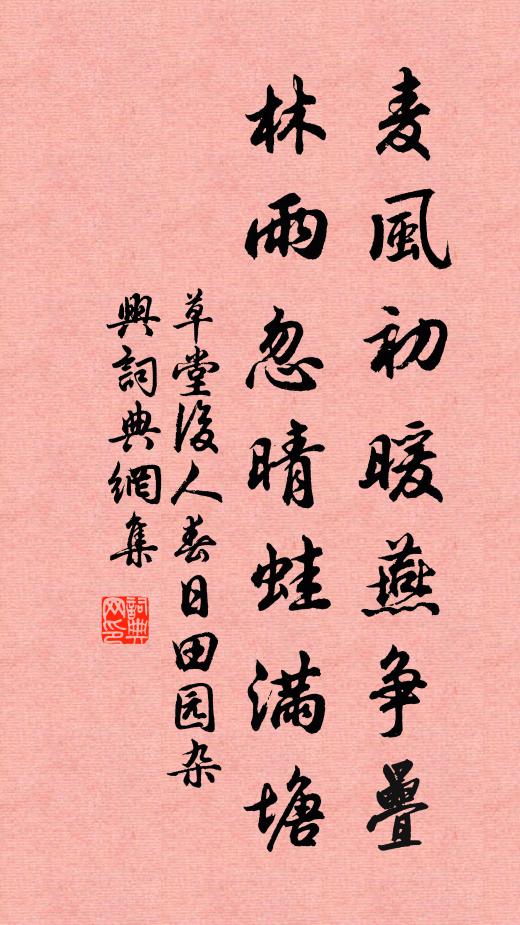 麦風初暖燕争疊
林雨忽晴蛙滿塘
草堂後人春日田园杂
興詞典網集
詞典
网印